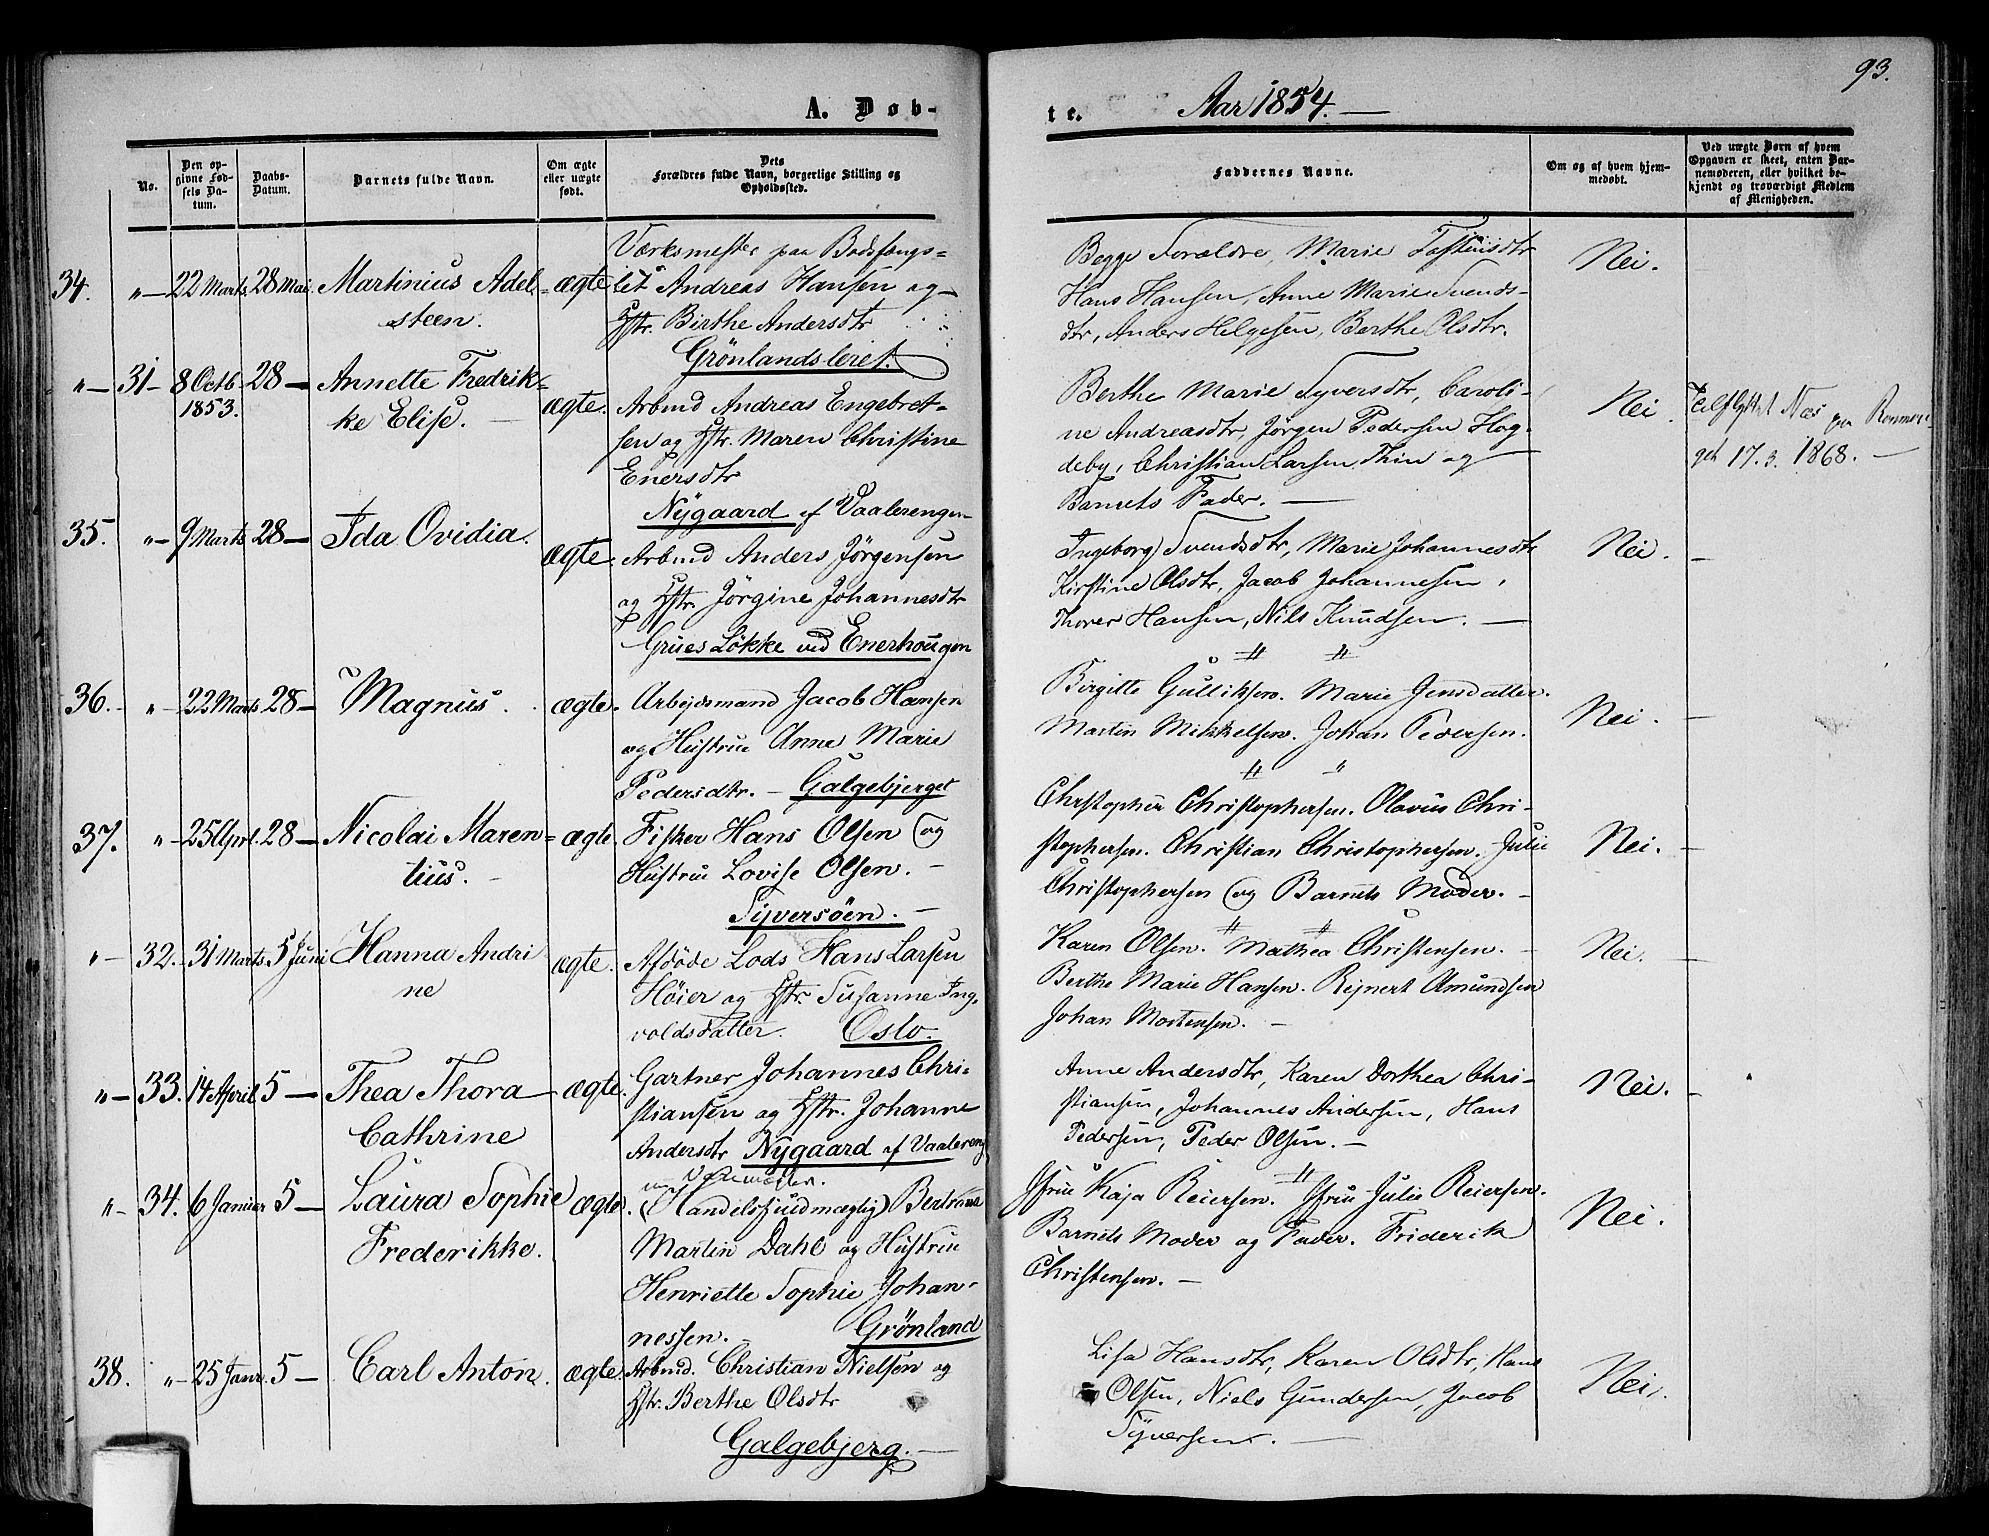 93.
A. Døb-
te. Aar 1854. —
No.
Den op-
givne Fød-
sels Da-
tum.
Daabs-
Datum.
Barnets fulde Navn.
Om ægte
eller uægte
født.
Dets
Forældres fulde Navn, borgerlige Stilling og
Opholdssted.
Faddernes Navne.
Om og af hvem hjem-
medøbt.
Ved uægte Børn af hvem
Opgaven er skeet, enten Bar-
nemoderen, eller hvilket be-
kjendt og troværdigt Medlem
af Menigheden.
34. "— 22 Marts 28 Mai. Martinius Adel-
steen.
ægte
Værksmester paa Bodsfængs-
let Andreas Hansen og
Hstr. Birthe Andersdtr
Grönlandsleret.
Begge Forældre, Marie Tostensdtr
Hans Hansen, Anne Marie Svends-
dtr, Anders Helgesen, Berthe Olsdtr.
Nei.
"— 31 — 8 Octb. 28 — Annette Fredrik-
1853.
ke Elise. —
ægte.
Arbmd Andreas Engebret-
sen og Hstr. Maren Christine
Enersdtr
Nÿgaard af Vaalerengen
Berthe Marie Syversdtr, Caroli-
ne Andreasdtr, Jörgen Pedersen Hog-
deby, Christian Larsen Thin og
Barnets Fader. —
Nei.
Næs paa Romeri
17.3. 1868. —
35. "— 9 Marts 28 — Ida Ovidia.
ægte.
Arbmd Anders Jörgensen
og Hstr. Jörgine Johannesdtr
Grues Løkke ved Enerhougen
Ingeborg Svendsdtr, Marie Johannesdtr
Kirstine Olsdtr, Jacob Johannesen,
Thorer Hansen, Nils Knudsen. —
Nei. —
36. "— 22 Marts 28 — Magnus.
ægte.
Arbejdsmand Jacob Hansen
og Hustrue Anne Marie
Pedersdtr. — Galgebjerget
Birgitte Gulliksen. Marie Jensdatter.
Martin Mikkelsen. Johan Pedersen.
Nei. —
37. "— 25 Apri. 28 — Nicolai Maren-
tius. —
ægte.
Fisker Hans Olsen og
Hustrue Lovise Olsen. —
Syversöen. —
Christopher Christophersen. Olavus Chri-
stophersen. Christian Christophersen. Julie
Christophersen og Barnets Moder. —
Nei. —
"— 32. 31 Marts 5 Juni Hanna Andri
ne
ægte.
Afdöde Lods Hans Larsen
Höier og Hstr. Susanne Ing-
voldsdatter. Oslo.
Karen Olsen. Mathea Christensen. —
Berthe Marie Hansen. Rejnert Amundsen
Johan Mortensen. —
Nei. —
"— 33. 14 April 5 — Thea Thora
Cathrine
ægte.
Gartner Johannes Chri-
stiansen og Hstr. Johanne
Andersdtr Nÿgaard af Vaalereng
Anne Andersdtr, Karen Dorthea Chri-
stiansen, Johannes Andersen, Hans
Pedersen, Peder Olsen. —
Nei. —
"— 34. 6 Januar 5 — Laura Sophie
Frederikke.
ægte.
(Handelsfuldmægtig) Bertram
Martin Dahl og Hustrue
Henriette Sophie Johan-
nessen. — Grönland
Jfru Kaja Reiersen. Jfru Julie Reiersen.
Barnets Moder og Fader. Friderik
Christensen. —
Nei.
38. "— 25 Janr. 5 — Carl Anton.
ægte.
Arbmd. Christian Nielsen og
Hstr. Berthe Olsdtr
Galgebjerg. —
Lisa Hansdtr, Karen Olsdtr, Hans
Olsen, Niels Gundersen, Jacob
Syversen. —
Nei.